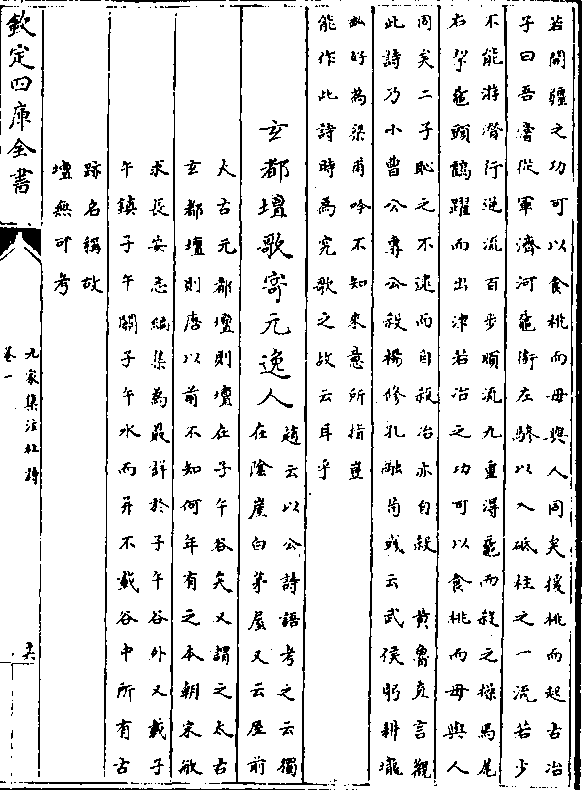 若開疆之功可以食桃而毋與人同矣援桃而起古冶
子曰吾嘗從軍濟河黿銜左驂以入砥柱之一流若少
不能游潛行逆流百步順流九里得黿而殺之操馬尾
右挈黿頭鶴躍而出津若冶之功可以食桃而毋與人
同矣二子恥之不逮而自殺冶亦自殺 黃魯直言觀
此詩乃小曹公專公殺楊修孔融荀彧云武侯躬耕壠
畝好為梁甫吟不知來意所指豈
能作此詩時為究歌之故云耳乎
玄都壇歌寄元逸人
趙云以公詩語考之云獨
在陰崖白茅屋又云屋前
太古元都壇則壇在子午谷矣又謂之太古
玄都壇則唐以前不知何年有之本朝宋敏
求長安志編集為最詳於子午谷外又載子
午鎮子午關子午水而并不載谷中所有古
跡名稱故
壇無可考
欽定四庫全書
九家集注杜詩
卷一